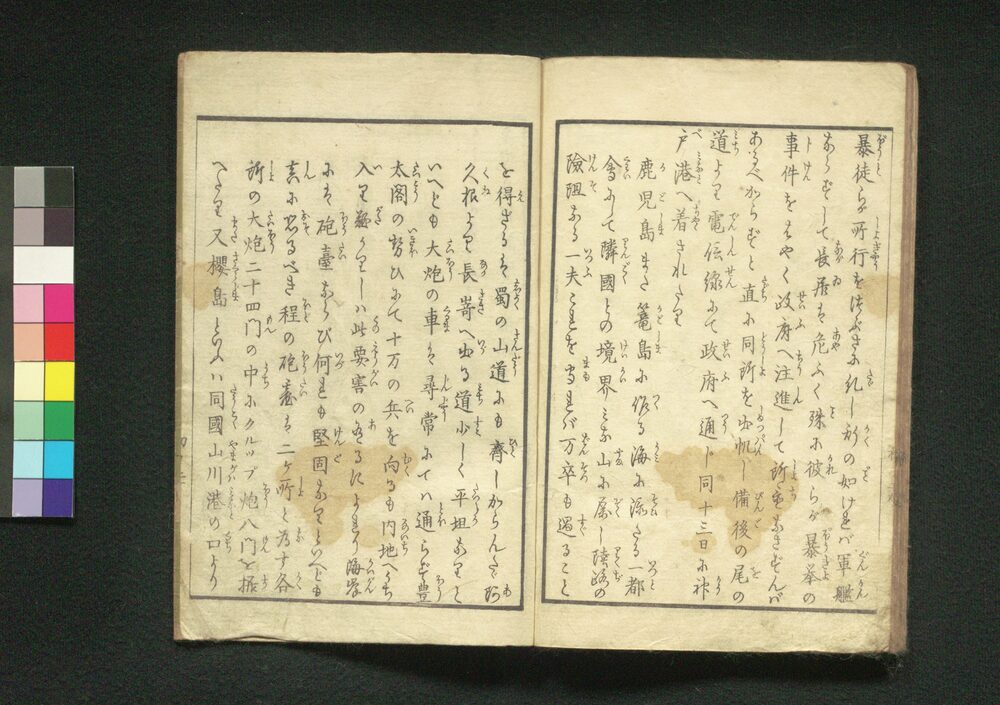 暴徒らが所行をつぶさに札し斯の如けれバ軍艦
あらずして長居ハ危ふく殊に彼らが暴挙の
事件をはやく政府へ注進して所置なさずんバ
あるべからずと直に同所を出帆し備後の尾の
道より電信線にて政府へ通じ同十三日に神
戸港へ着されたり
鹿児島また篭島に作る海に添たる一都
會にて隣國との境界ミな山に属し陸路の
險阻なる一夫これを守れバ万卒も過ること
を得ざるハ蜀の山道にも齊しからんただ阿
久根より長嵜へ出る道少しく平坦なりと
いへども大炮の車ハ尋常にてハ通らず豊
太閤の勢ひにて十万の兵を向るも内地へうち
入り難かりしハ此要害のあるによれり海岸
にハ砲臺ならび何れも堅固なりといへども
真に恐るべき程の砲臺ハ二ケ所と為す各
所の大炮二十四門の中にクルップ炮八門を据
へたり又櫻島といふハ同國山川港の口より